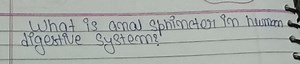 What is anal sphincter in human
digestive system?